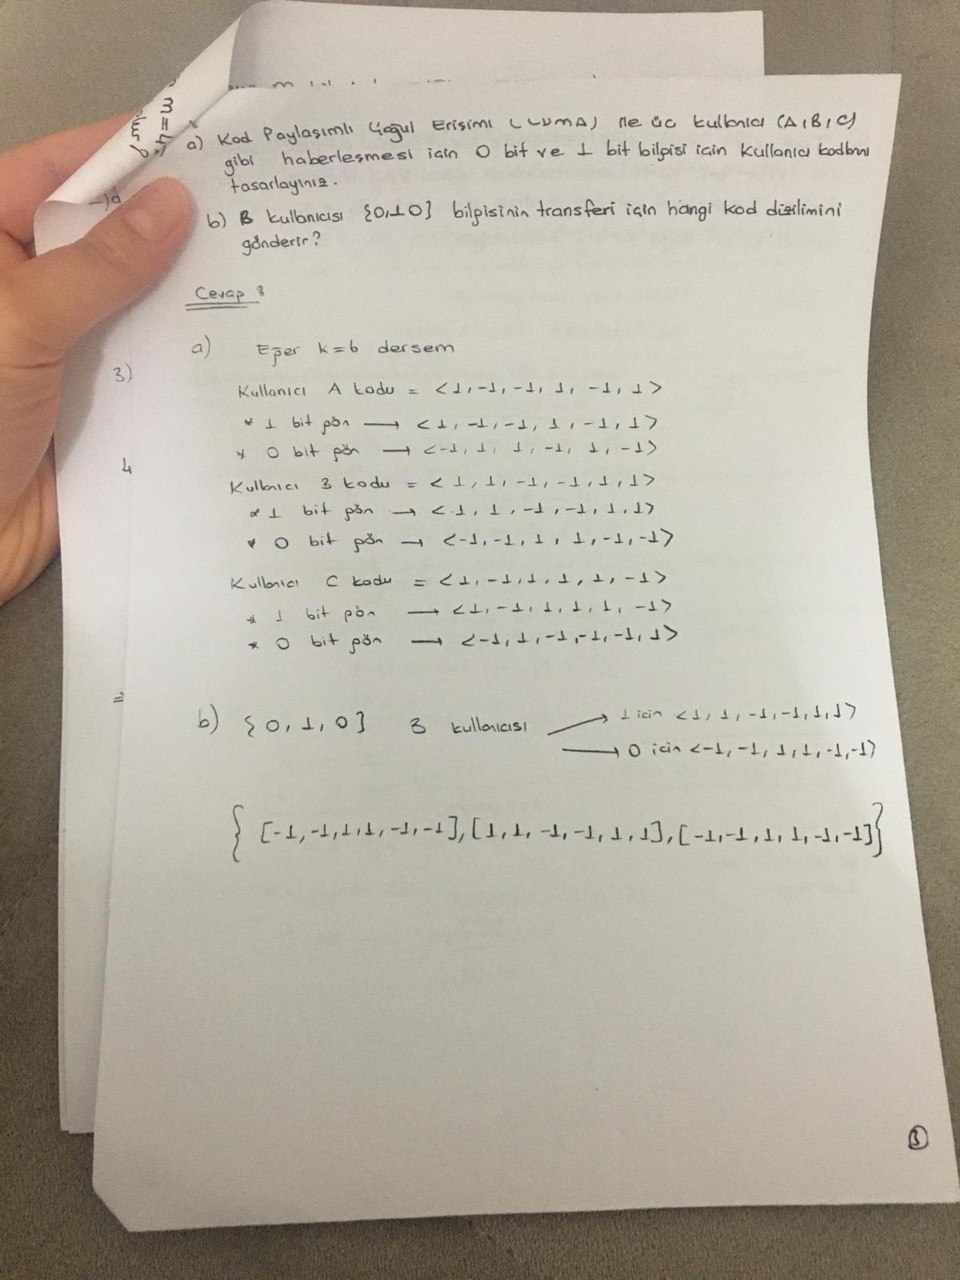 a) Kod Paylaşımlı Çoğul Erişimi (CDMA) ile üc kullanıcı (A,B,C)
gibi haberleşmesi icin 0 bit ve 1 bit bilgisi icin kullanıcı kodlarını
tasarlayınız.
b) B kullanıcısı {0,10} bilgisinin transferi için hangi kod dizilimini
gönderir?
Cevap 3
a) Eğer k=6 dersem
3)
Kullanıcı A kodu = <1,-1,-1, 1, -1, 1>
* 1 bit gön → <1, -1, -1, 1, -1, 1>
* 0 bit gön → <-1, 1, 1, -1, 1, -1>
4
Kullanıcı B kodu = <1, 1, -1, -1, 1, 1>
* 1 bit gön → <1, 1, -1, -1, 1, 1>
* 0 bit gön → <-1, -1, 1, 1, -1, -1>
Kullanıcı C kodu = <1, -1, 1, 1, 1, -1>
* 1 bit gön → <1, -1, 1, 1, 1, -1>
* 0 bit gön → <-1, 1, -1, -1, -1, 1>
b) {0, 1, 0} B kullanıcısı → 1 icin <1, 1, -1, -1, 1, 1>
→ 0 icin <-1, -1, 1, 1, -1, -1>
{ [-1, -1, 1, 1, -1, -1], [1, 1, -1, -1, 1, 1], [-1, -1, 1, 1, -1, -1] }
3